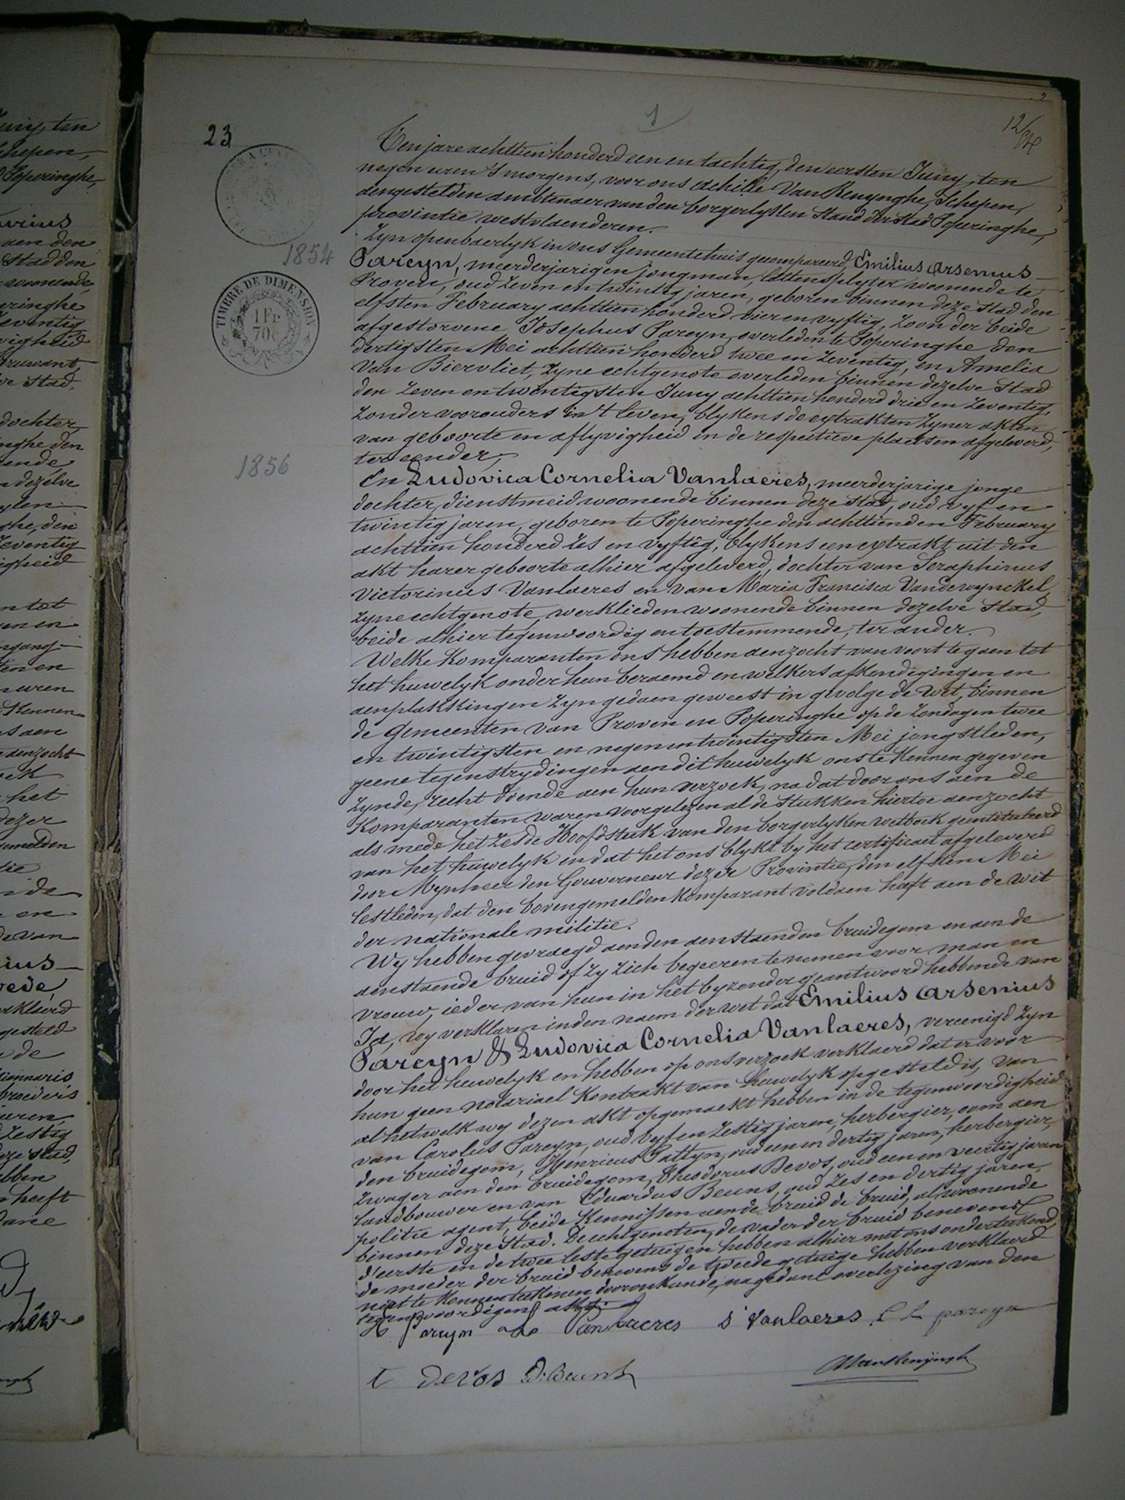 1
12/34
23
1854
TIMBRE DE DIMENSION
1 Fr
70c
1856
Ten jare achttien honderd een en tachtig, den eersten Juny, ten
negen uren 's morgens, voor ons Achille Van Renynghe, Schepen,
aengestelden ambtenaer van den borgerlyken Stand der stad Poperinghe,
provintie westvlaenderen.
Zyn openbaerlyk in ons Gemeentehuis gecompareerd, Emilius Arsenius
Pareyn, meerderjarigen jongman, woonende te
Proven, oud zeven en twintig jaren, geboren binnen deze stad den
elfsten February achttien honderd vier en vyftig, zoon der beide
afgestorvene Josephus Pareyn, overleden te Poperinghe den
dertigsten Mei achttien honderd twee en zeventig, en Amelia
Van Biervliet, zyne echtgenote overleden binnen dezelve Stad
den zeven en twintigsten Juny achttien honderd drie en zeventig,
zonder voorouders in 't leven, blykens de extrakten zyner akten
van geboorte en aflyvigheid in de respectieve plaetsen afgeleverd,
ter eender,
En Ludovica Cornelia Vanlaeres, meerderjarige jonge
dochter, dienstmeid, woonende binnen deze stad, oud vyf en
twintig jaren, geboren te Poperinghe den achttienden February
achttien honderd zes en vyftig, blykens een extrakt uit den
akt harer geboorte alhier afgeleverd, dochter van Seraphinus
Victorinus Vanlaeres en van Maria Francisca Vandewynckel,
zyne echtgenote, werklieden woonende binnen dezelve stad,
beide alhier tegenwoordig en toestemmende, ter ander.
Welke komparanten ons hebben aenzocht van voort te gaen tot
het huwelyk onder hun beraemd en welkers afkondigingen en
aenplakkingen zyn gedaen geweest in gevolge de Wet, binnen
de Gemeenten van Proven en Poperinghe op de Zondagen twee
en twintigsten en negen en twintigsten Mei jongstleden,
geene tegenstrydingen aen dit huwelyk ons te kennen gegeven
zynde, recht doende aen hun verzoek, na dat door ons aen de
komparanten waren voorgelezen al de stukken hiertoe aenzocht
als mede het zesde Hoofdstuk van den borgerlyken wetboek geintituleerd
van het huwelyk en dat het ons blykt by het certificaet afgeleverd
door Mynheer den Gouverneur dezer Provintie, den elfsten Mei
lestleden, dat den bovengemelden komparant voldaen heeft aen de wet
der nationale militie.
Wy hebben gevraegd aen den aenstaenden bruidegom en aen de
aenstaende bruid of zy zich begeeren te nemen voor man en
vrouw, ieder van hun in het byzonder geantwoord hebbende van
Ja, wy verklaren in den naem der wet dat Emilius Arsenius
Pareyn & Ludovica Cornelia Vanlaeres, vereenigd zyn
door het huwelyk en hebben op ons verzoek verklaerd dat er voor
hun geen notariael kontrakt van huwelyk opgesteld is, van
al hetwelk wy dezen akt opgemaekt hebben in de tegenwoordigheid
van Carolus Pareyn, oud vyf en zestig jaren, herbergier, oom aen
den bruidegom, Henricus Pattyn, oud een en dertig jaren, herbergier,
zwager aen den bruidegom, Theodorus Devos, oud een en veertig jaren
landbouwer en van Eduardus Beuns, oud zes en dertig jaren,
politie agent, beide kennissen aen de bruid, al woonende
binnen deze stad. De echtgenoten, de vader der bruid benevens
d'eerste en de twee leste getuigen hebben alhier met ons onderteekend,
de moeder der bruid benevens de tweede getuige hebben verklaerd
niet te kunnen teekenen door onkunde, na gedane overlezing van den
tegenwoordigen akt.
E Pareyn Vanlaeres S Vanlaeres C L pareyn
t devos D. Beuns
AVanRenynghe